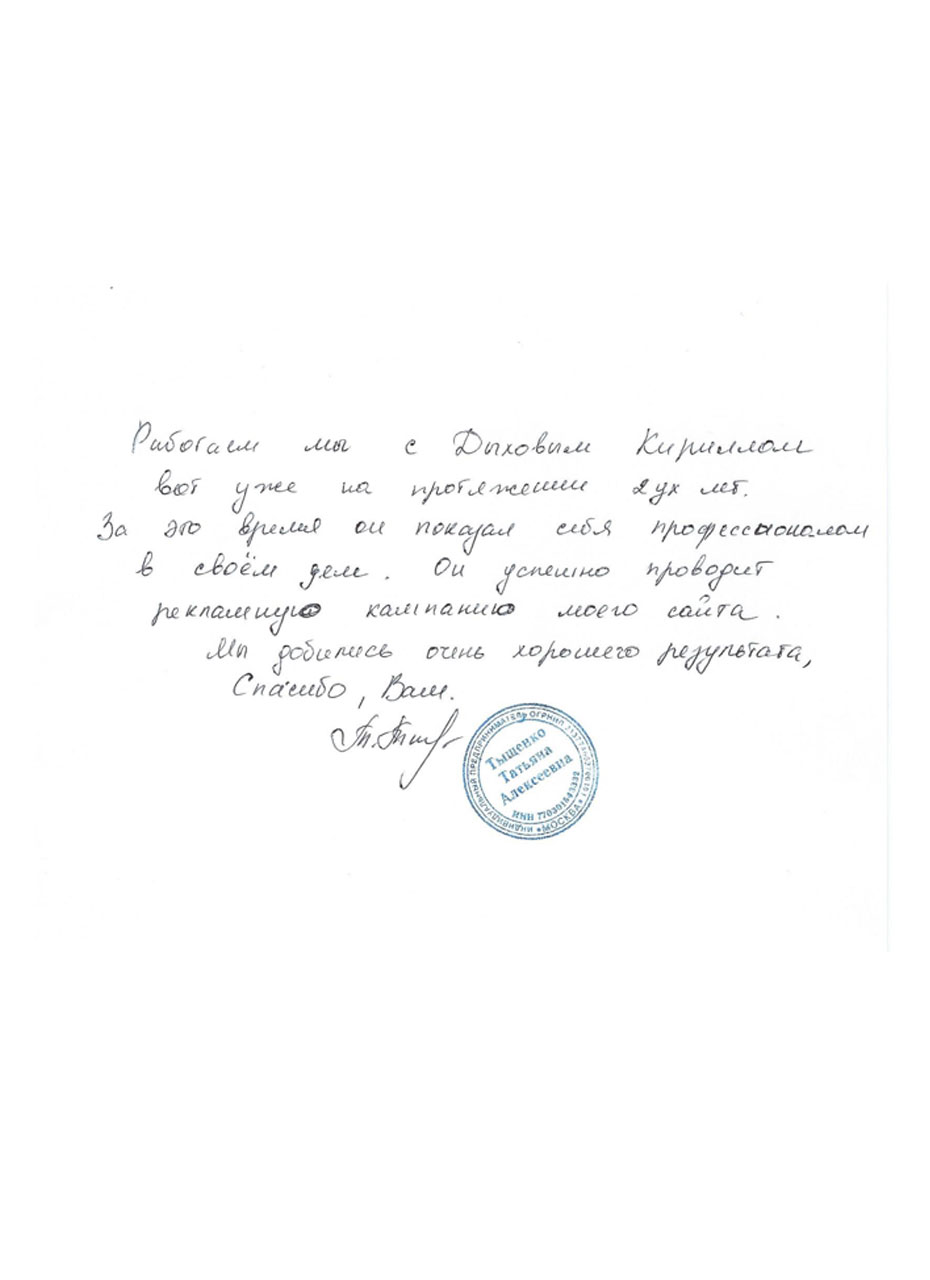 Работаем мы с Дыховым Кириллом
вот уже на протяжении 2ух лет.
За это время он показал себя профессионалом
в своём деле. Он успешно проводит
рекламную кампанию моего сайта.
Мы добились очень хорошего результата,
Спасибо, Вам.
ИНДИВИДУАЛЬНЫЙ ПРЕДПРИНИМАТЕЛЬ ОГРНИП
Тыщенко
Татьяна
Алексеевна
ИНН 770301843332
МОСКВА